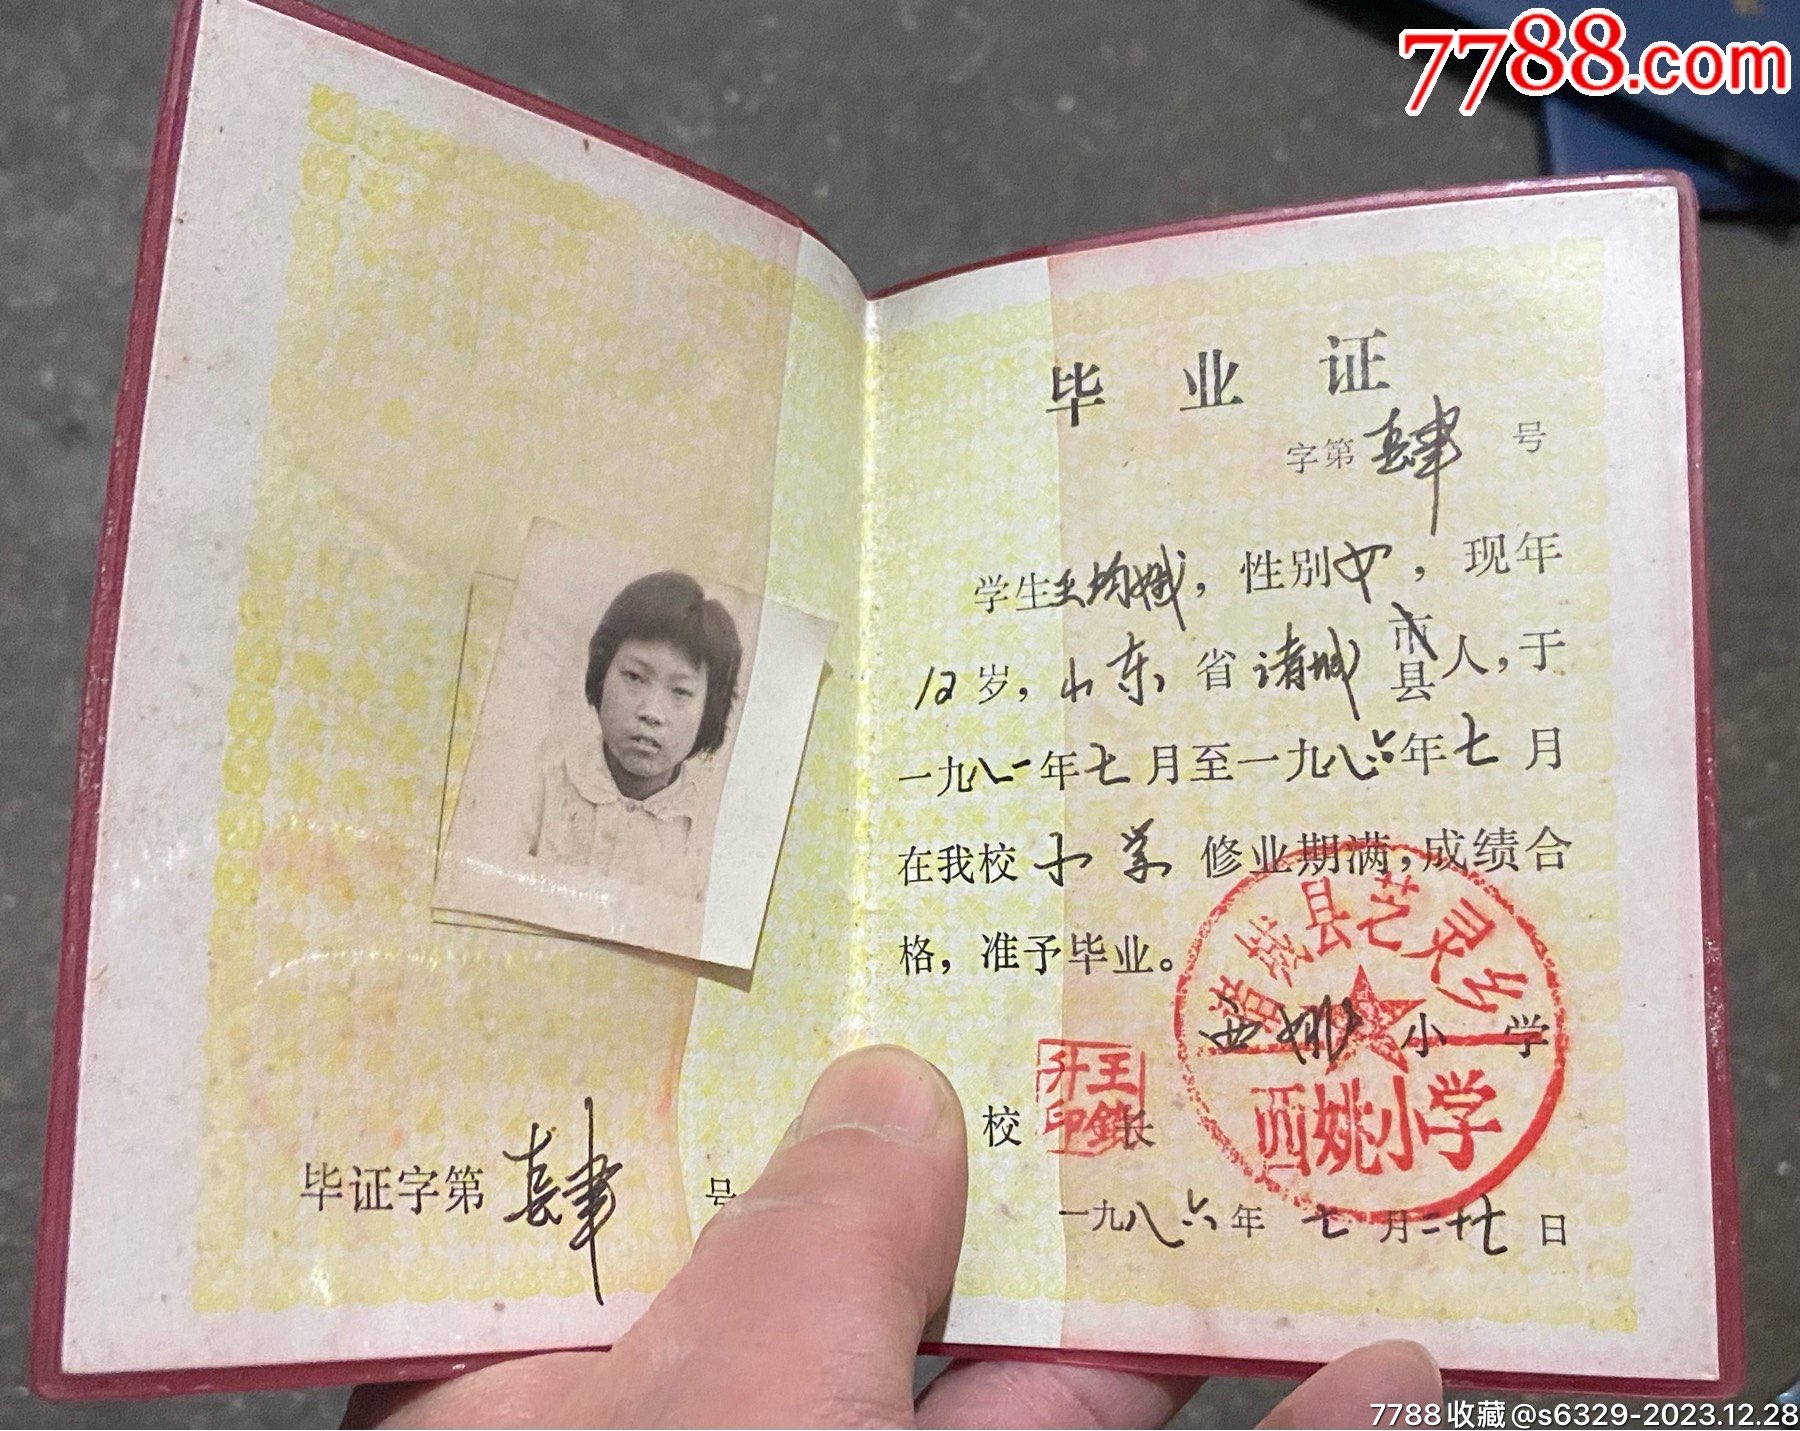 7788.com
毕业证
字第肆号
学生王均娥，性别女，现年
12岁，山东省诸城市县人，于
一九八一年七月至一九八六年七月
在我校小学修业期满，成绩合
格，准予毕业。
诸城县芝灵乡
西姚小学
西姚小学
校长
王鐵升印
一九八六年七月二十七日
毕证字第肆号
7788收藏@s6329-2023.12.28